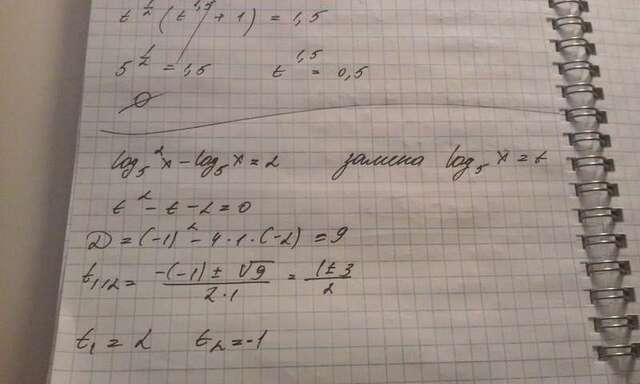 t^½ (t^1,5 + 1) = 1,5
5^½ = 1,5 t^1,5 = 0,5
∅
log₅²x - log₅x = 2 замена log₅x = t
t² - t - 2 = 0
D = (-1)² - 4·1·(-2) = 9
t₁,₂ = (-(-1) ± √9)/(2·1) = (1 ± 3)/2
t₁ = 2 t₂ = -1